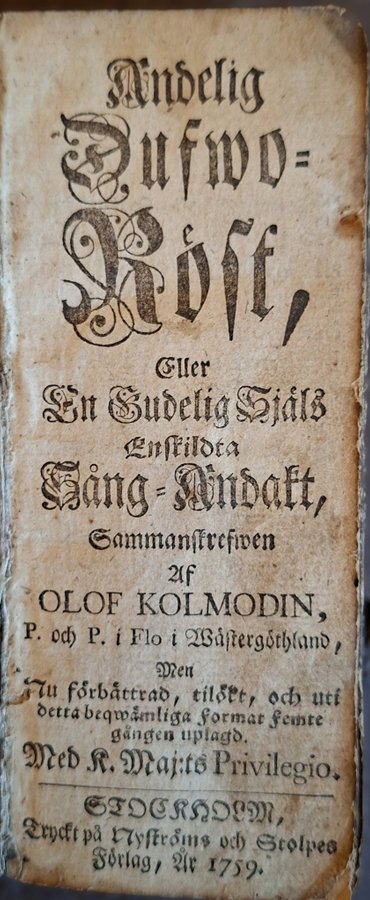 Andelig
Dufwo-
Röst,
Eller
En Gudelig Själs
Enskildta
Sång-Andakt,
Sammanskrefwen
Af
OLOF KOLMODIN,
P. och P. i Flo i Wästergöthland,
Men
Nu förbättrad, tilökt, och uti
detta beqwämliga Format femte
gången uplagd.
Med K. Maj:ts Privilegio.
STOCKHOLM,
Tryckt på Nyströms och Stolpes
Förlag, År 1759.